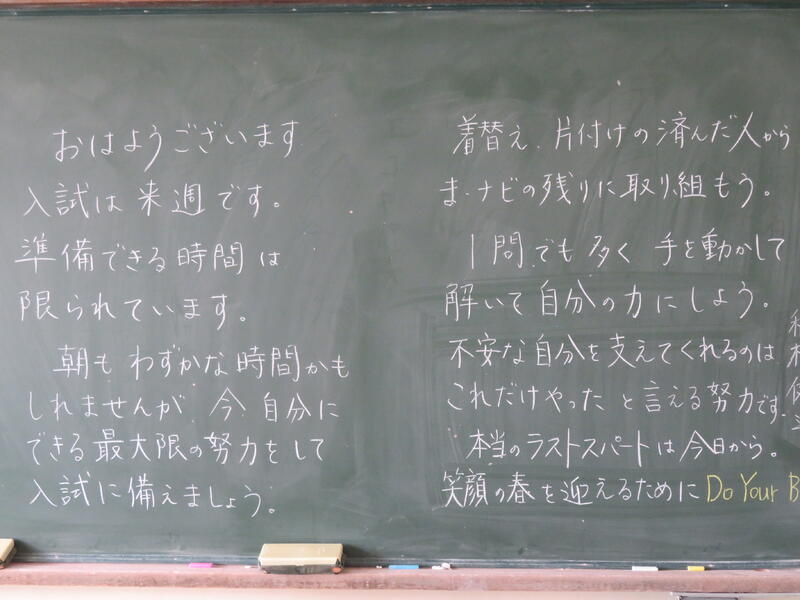 おはようございます
入試は来週です。
準備できる時間は
限られています。
朝もわずかな時間かも
しれませんが、今、自分に
できる最大限の努力をして
入試に備えましょう。
着替え、片付けの済んだ人から
ま・ナビの残りに取り組もう。
1問でも多く手を動かして
解いて自分の力にしよう。
不安な自分を支えてくれるのは
これだけやったと言える努力です。
本当のラストスパートは今日から。
笑顔の春を迎えるために Do Your B